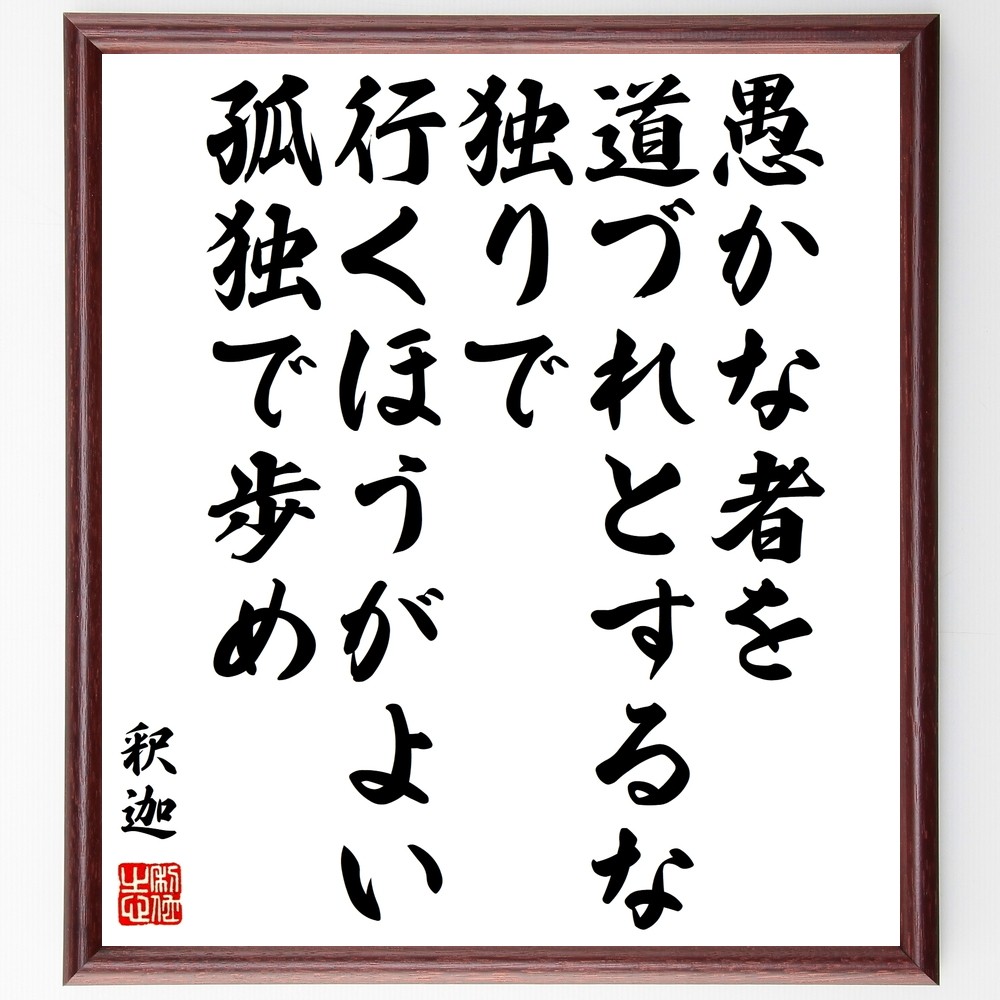 愚かな者を
道づれとするな
独りで
行くほうがよい
孤独で歩め
釈迦